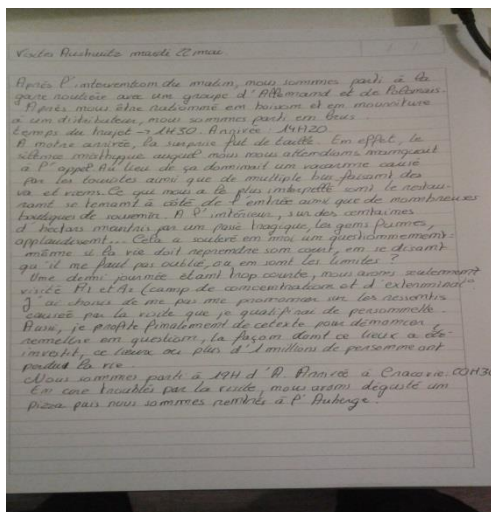 Visites Auschwitz mardi 22 mai
Après l'intervention du matin, nous sommes parti à la
gare routière avec un groupe d'Allemand et de Polonais.
Après nous être rationnné en boisson et en nourriture
à un distributeur, nous sommes parti en bus
temps du trajet → 1H30. Arrivée : 14H20.
A notre arrivée, la surprise fut de taille. En effet, le
silence auquel nous nous attendions manquait
à l'appel. Au lieu de ça dominait un vacarme causé
par les touristes ainsi que de multiple bus faisant des
va et viens. Ce qui nous a le plus interpellé sont le restau-
rant se tenant à côté de l'entrée ainsi que de nombreuses
boutiques de souvenir. A l'intérieur, sur des centaines
d'hectars meurtris par un passé tragique, les gens fument,
applaudissent... Cela a soulevé en moi un questionnement:
même si la vie doit reprendre son court, en se disant
qu'il ne faut pas oublié, où en sont les limites ?
Une demi journée étant trop courte, nous avons seulement
visité A1 et A2 (camp de concentration et d'extermination
J'ai choisis de ne pas me prononcer sur les ressentis
causée par la visite que je qualifirai de personnelle.
Aussi, je profite finalement de ce texte pour dénoncer,
remettre en question, la façon dont ce lieux a été
investit, ce lieux où plus d'1 millions de personne ont
perdus la vie.
Nous sommes parti à 19H d'A. Arrivée à Cracovie:
En core troublés par la visite, nous avons dégusté un
pizza puis nous sommes rentrés à l'Auberge.